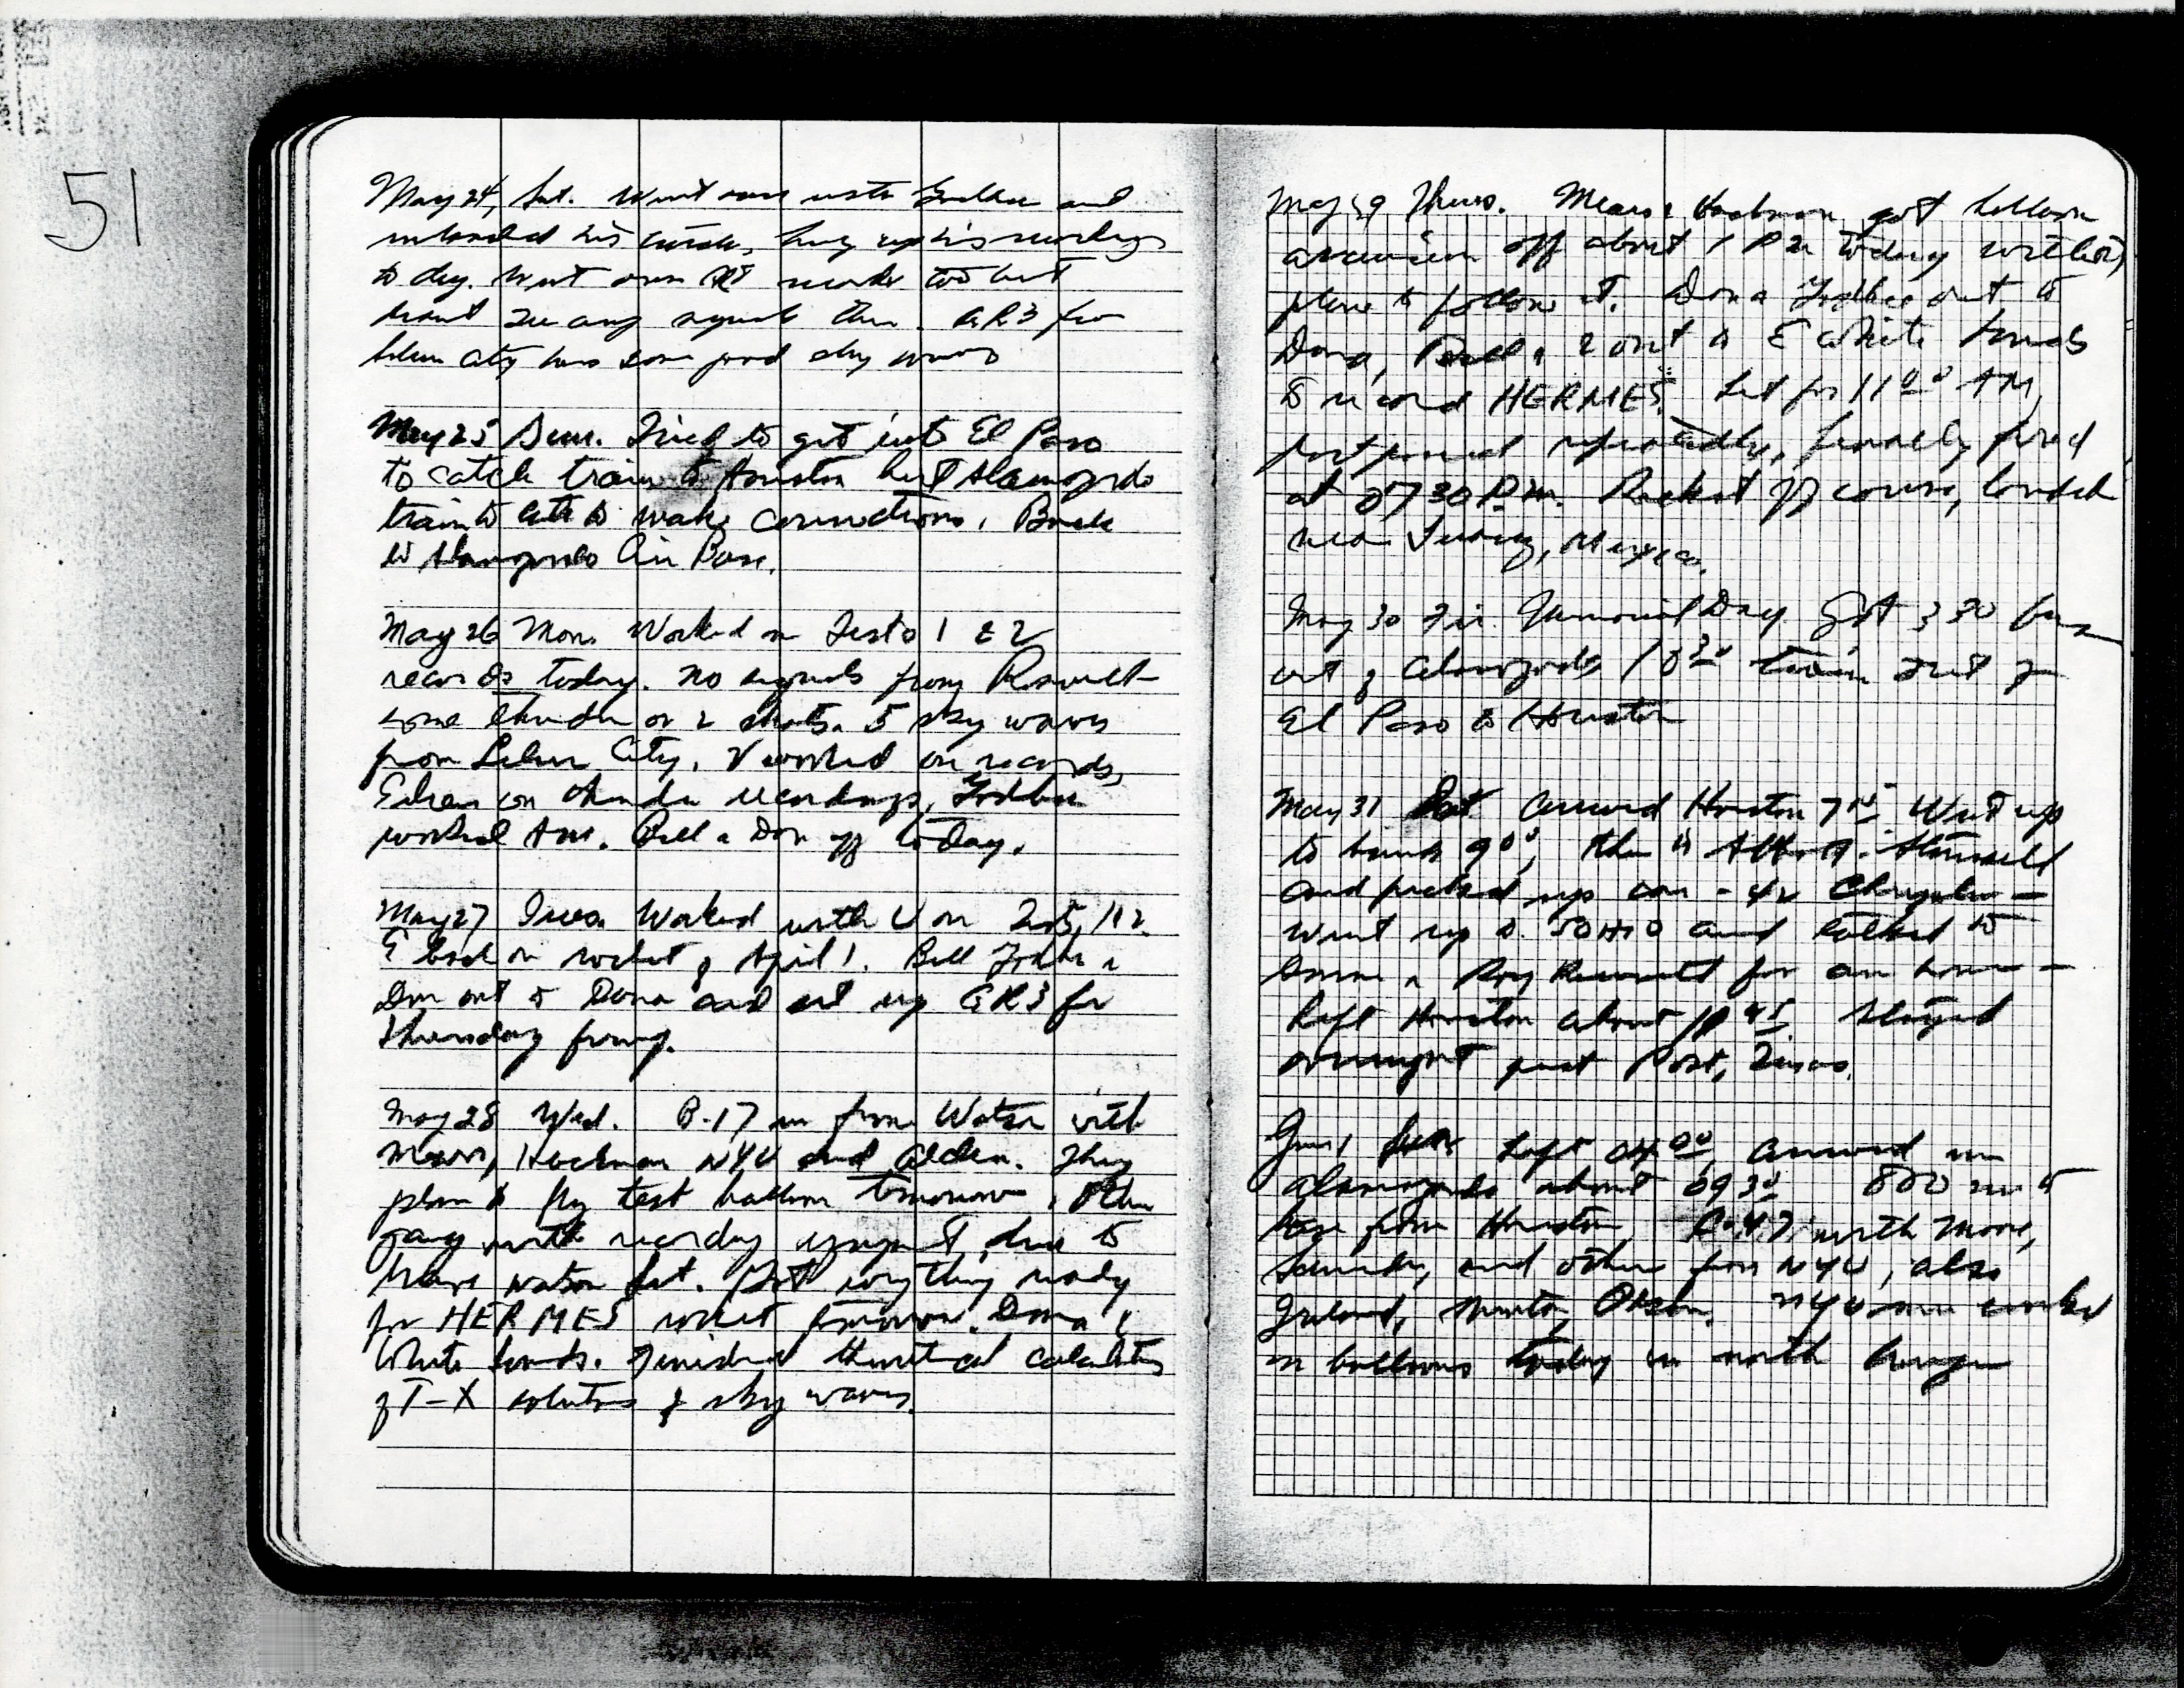 51
May 24, Sat. Went over with Godbee and
unloaded his circuits, hung up his recordings
to dey. Went over records too but
don't see any signals then. GR3 from
Silver City has some good sky waves
May 25 Sun. Tried to get into El Paso
to catch train to Houston but Alamogordo
train to late to make connections. Back
to Alamogordo Air Base.
May 26 Mon. Worked on Tests 1 & 2
records today. No signals from Roswell
some thunder or 2 shots. 5 sky waves
from Silver City. V worked on records,
Edmon on thunder recordings, Godbee
worked Am. Bill & Don off today.
May 27 Tues. Worked with V on Test 1, 2.
E back on rocket of April 1. Bill Godbee &
Don out to Dona and set up GR3 for
Thursday firing.
May 28 Wed. B-17 in from Watson with
Mears, Hackman NYU and Alden. They
plan to fly test balloon tomorrow. Other
gang with recording equipment due to
leave Watson Sat. Got everything ready
for HERMES rocket tomorrow. Dona &
White Sands. Finished theoretical calculations
of T-X solutions of sky waves.
May 29 Thurs. Mears & Hackman got balloon
ascension off about 1 PM today with
plane to follow it. Don & Godbee out to
Dona, Bill & I out to White Sands
to record HERMES. Set for 11 00 AM,
postponed repeatedly, finally fired
at 0730 P.M. Rocket off course, landed
near Juarez, Mexico.
May 30 Fri. Memorial Day. Got 3 30 bus
out of Alamogordo, train out of
El Paso to Houston
May 31 Sat. Arrived Houston 7 15. Went up
to 9 00, then to
and picked up car - 42 Chrysler -
Went up to SOHIO and talked to
& Roy Bennett for an hour -
Left Houston about 1P 45 Stayed
overnight past Post, Texas.
Jun 1 Sun. Left 04 00 Arrived in
Alamogordo about 09 30 800 mi to
base from Houston. C-47 with Moore,
Schneider, and others from NYU, also
Ireland, Minton, Olsen. NYU men worked
on balloons today in north hangar